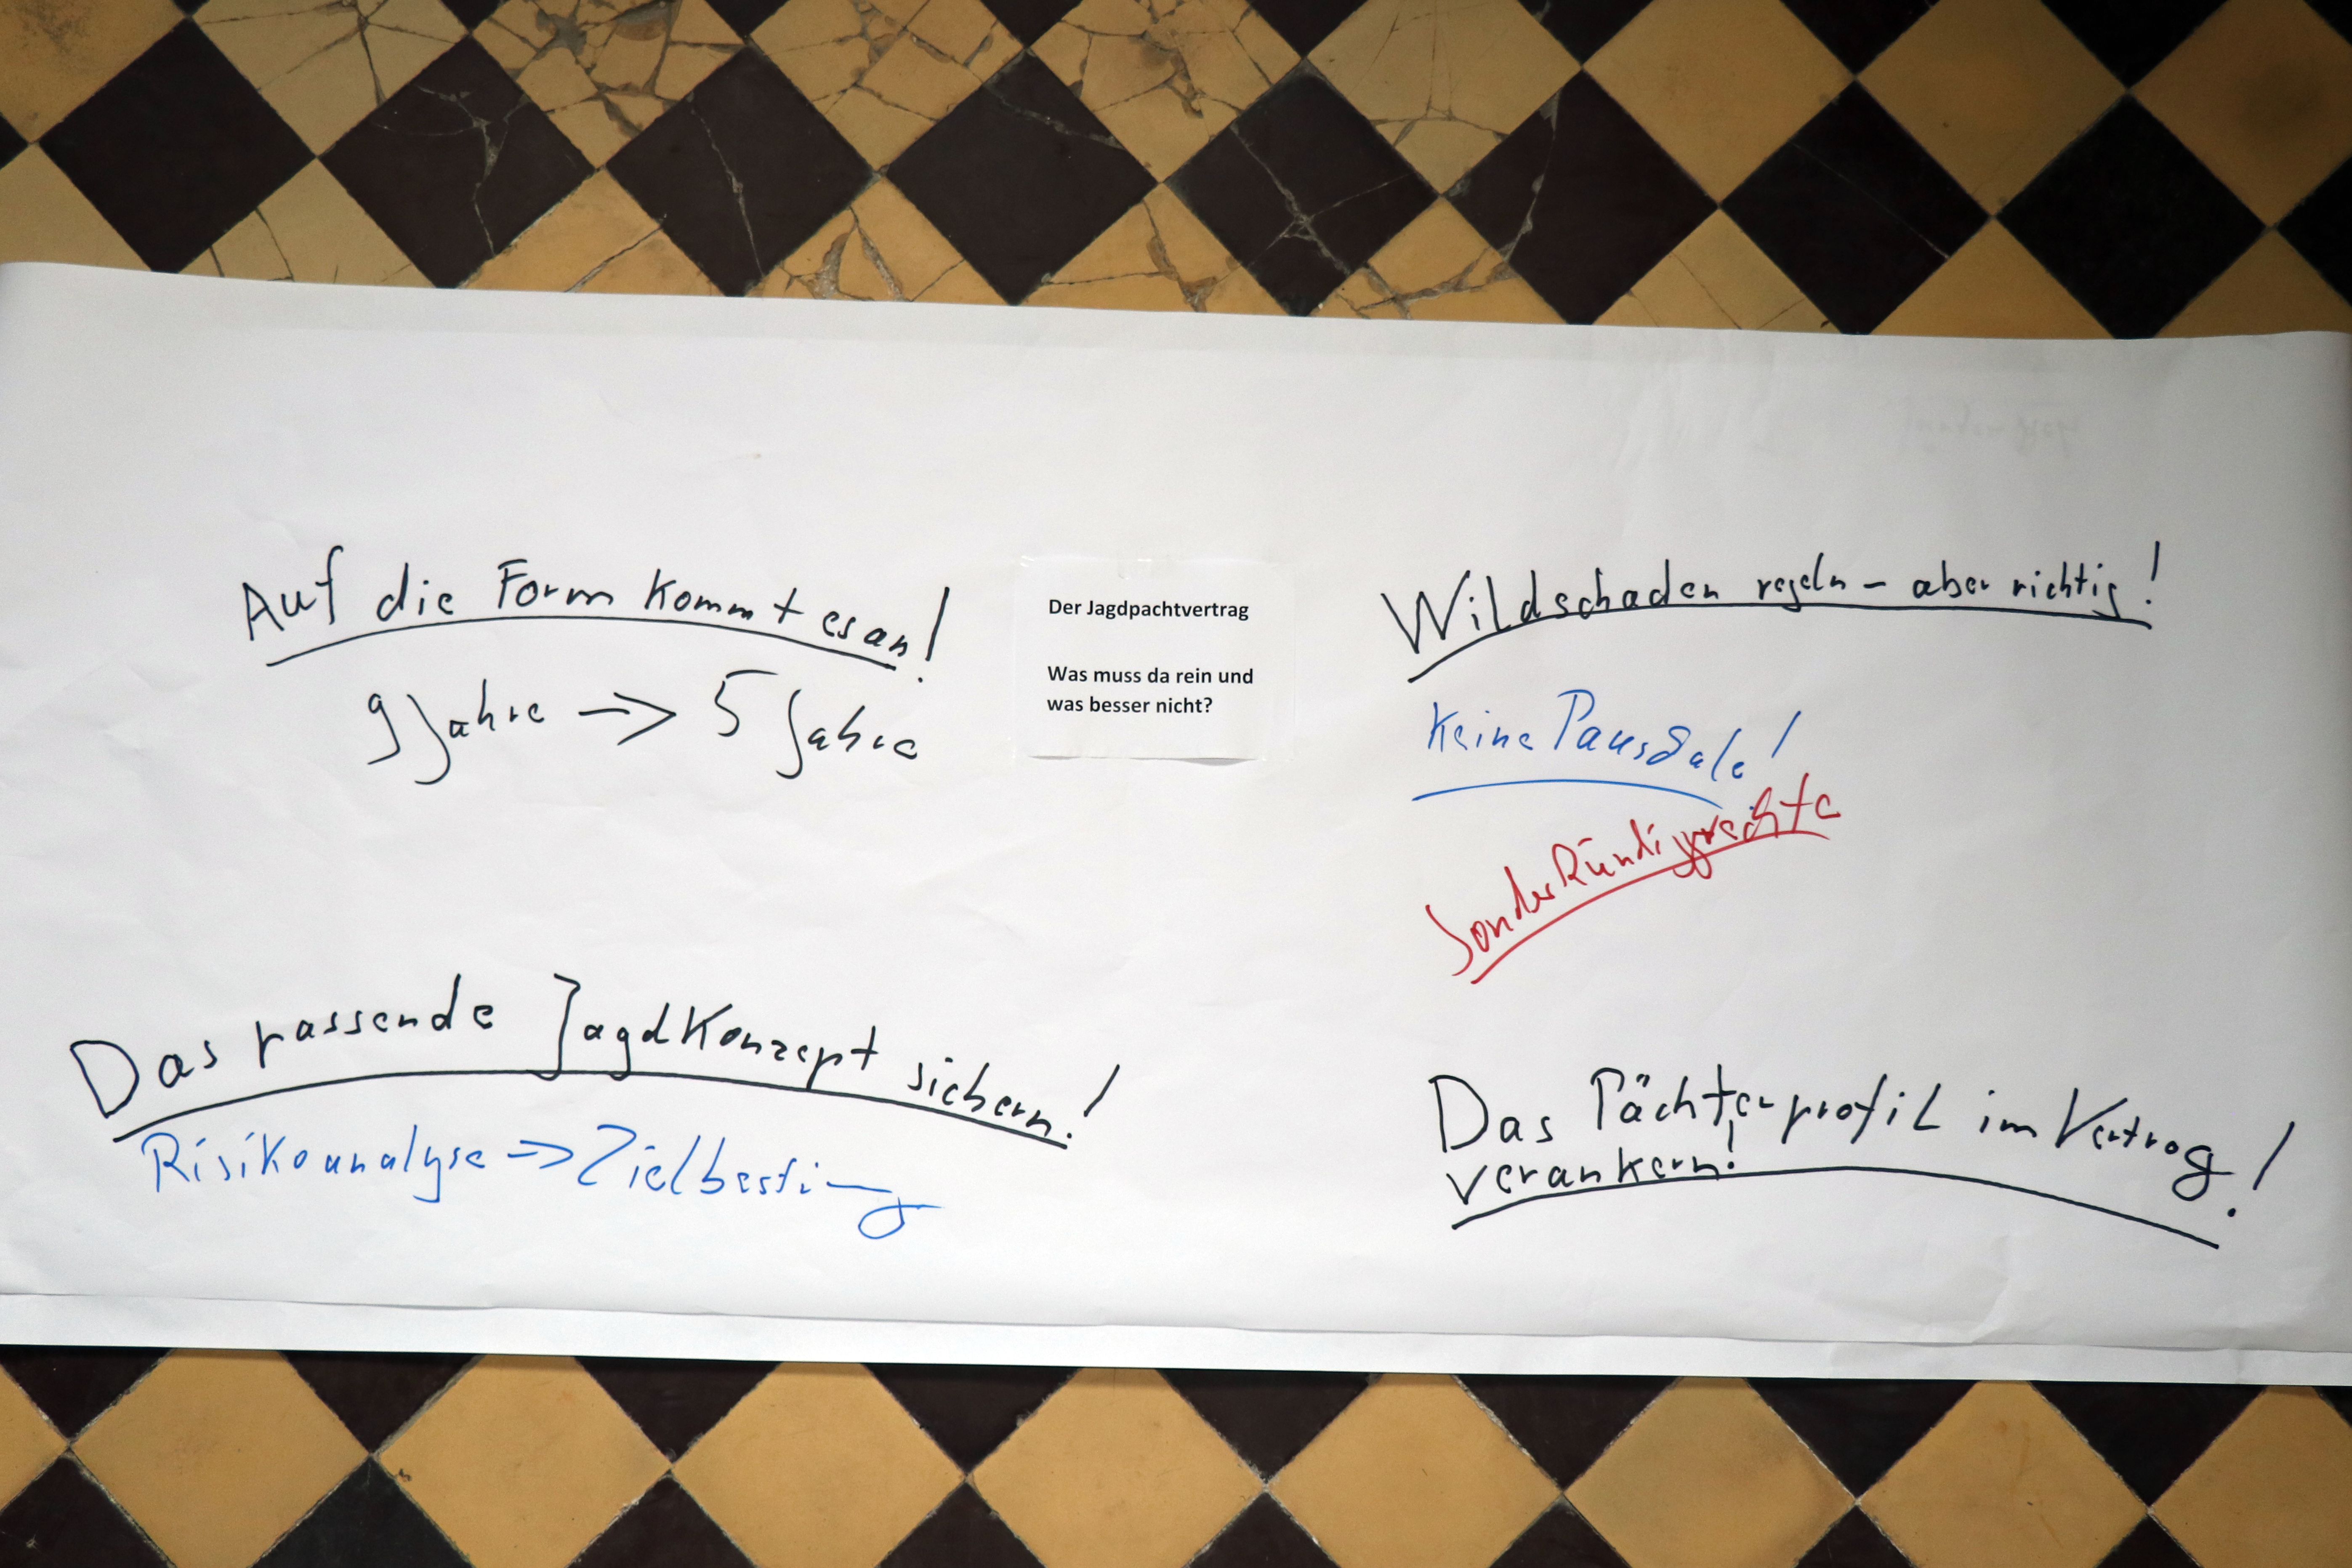 Auf die Form kommt es an!
9 Jahre → 5 Jahre
Der Jagdpachtvertrag
Was muss da rein und
was besser nicht?
Wildschaden regeln – aber richtig!
Keine Pauschale!
Sonderkündigrechte
Das passende Jagdkonzept sichern!
Risikoanalyse → Zielbestimmg
Das Pächterprofil im Vertrag!
verankern!